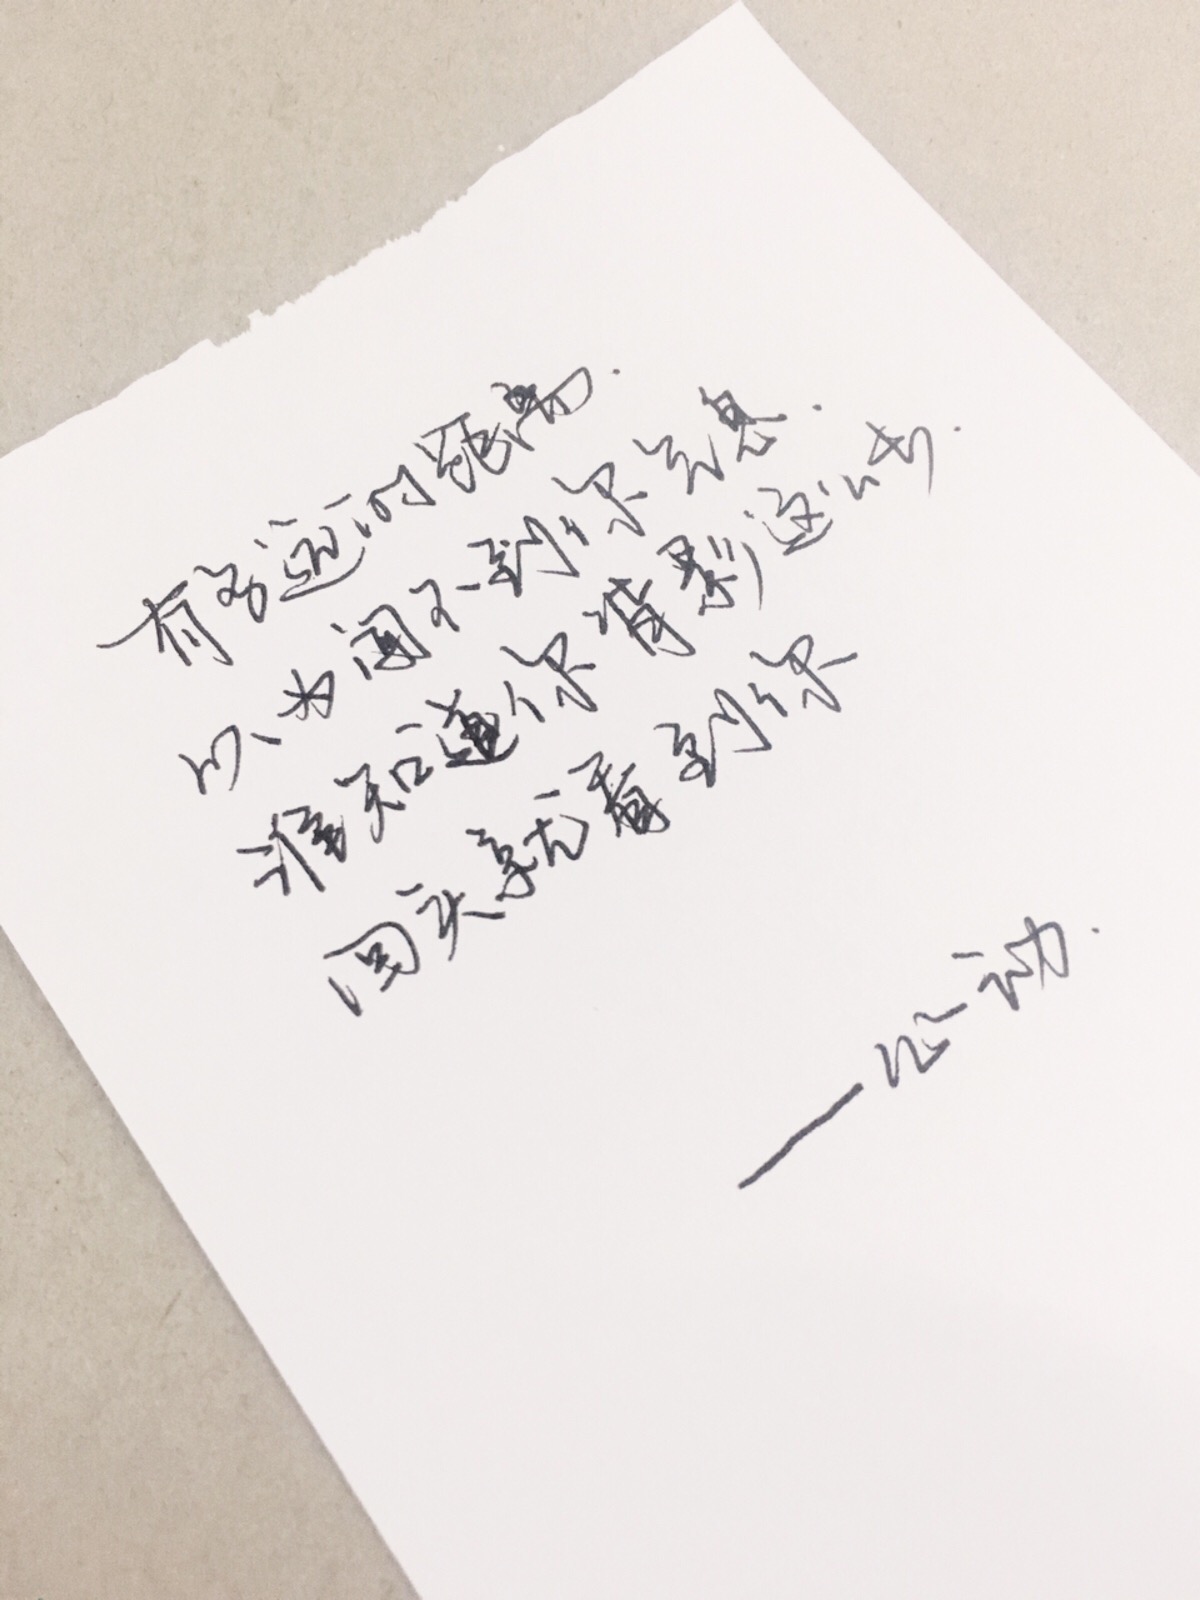 有多远的距离.
以为闻不到你气息.
谁知道你背影这么长.
回头就看到你
—心动.